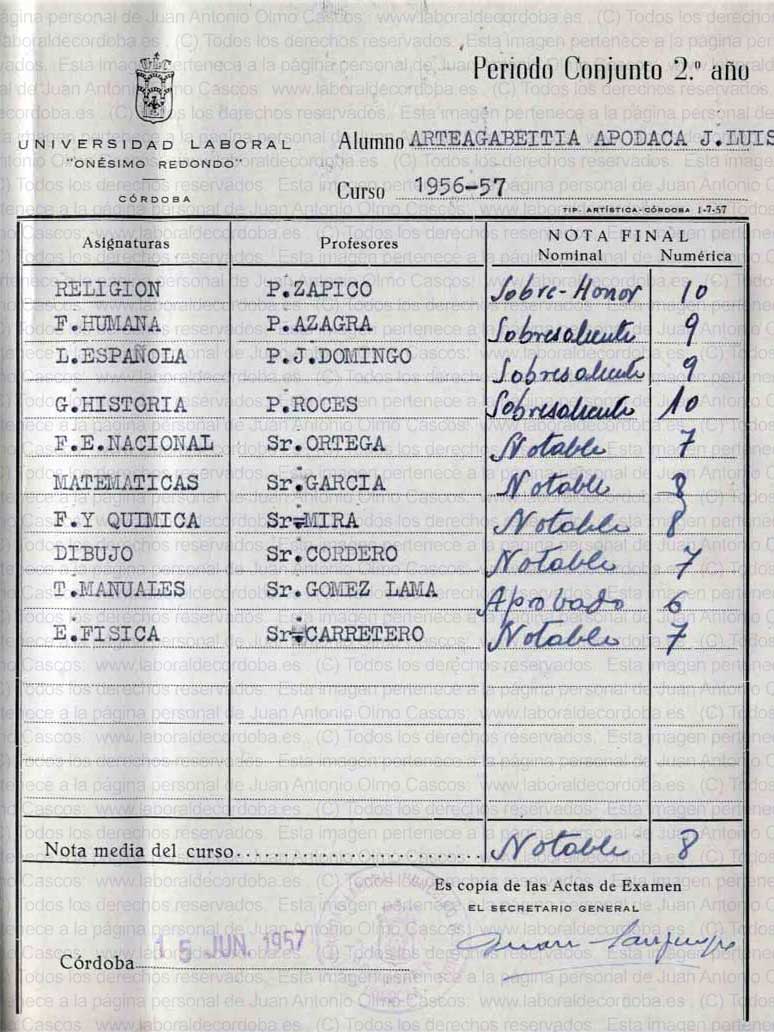 Periodo Conjunto 2.º año
UNIVERSIDAD LABORAL
"ONÉSIMO REDONDO"
CÓRDOBA
Alumno ARTEAGABEITIA APODACA J.LUIS
Curso 1956-57
TIP. ARTÍSTICA-CÓRDOBA 1-7-57
Asignaturas Profesores NOTA FINAL
Nominal Numérica
RELIGION P.ZAPICO Sobre-Honor 10
F.HUMANA P.AZAGRA Sobresaliente 9
L.ESPAÑOLA P.J.DOMINGO Sobresaliente 9
G.HISTORIA P.ROCES Sobresaliente 10
F.E.NACIONAL Sr.ORTEGA Notable 7
MATEMATICAS Sr.GARCIA Notable 8
F.Y QUIMICA Sr.MIRA Notable 8
DIBUJO Sr.CORDERO Notable 7
T.MANUALES Sr.GOMEZ LAMA Aprobado 6
E.FISICA Sr.CARRETERO Notable 7
Nota media del curso Notable 8
Es copia de las Actas de Examen
EL SECRETARIO GENERAL
Córdoba 15 JUN. 1957
Esta imagen pertenece a la página personal de Juan Antonio Olmo Cascos: www.laboraldecordoba.es . (C) Todos los derechos reservados.